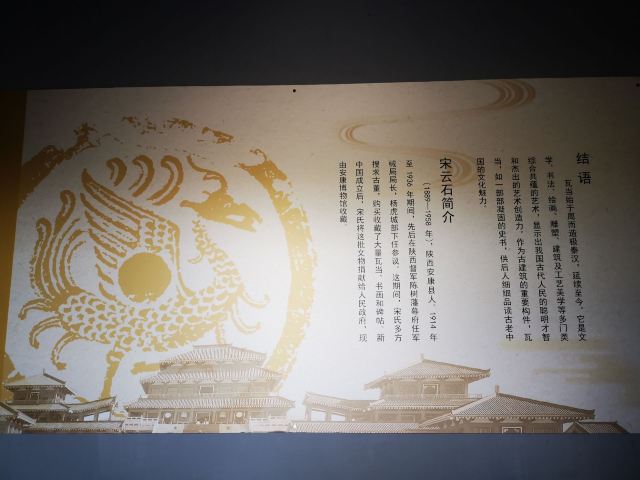 结语
瓦当始于周而造极秦汉，延续至今，它是文
学、书法、绘画、雕塑、建筑及工艺美学等多门类
综合共蕴的艺术，显示出我国古代人民的聪明才智
和杰出的艺术创造力，作为古建筑的重要构件，瓦
当，如一部部凝固的史书，供后人细细品读古老中
国的文化魅力。
宋云石简介
（1889—1958 年），陕西安康县人。1914 年
至 1926 年期间，先后在陕西督军陈树藩幕府任军
械局局长，杨虎城部下任参议。这期间，宋氏多方
搜求古董，购买收藏了大量瓦当、书画和碑帖。新
中国成立后，宋氏将这批文物捐献给人民政府，现
由安康博物馆收藏。